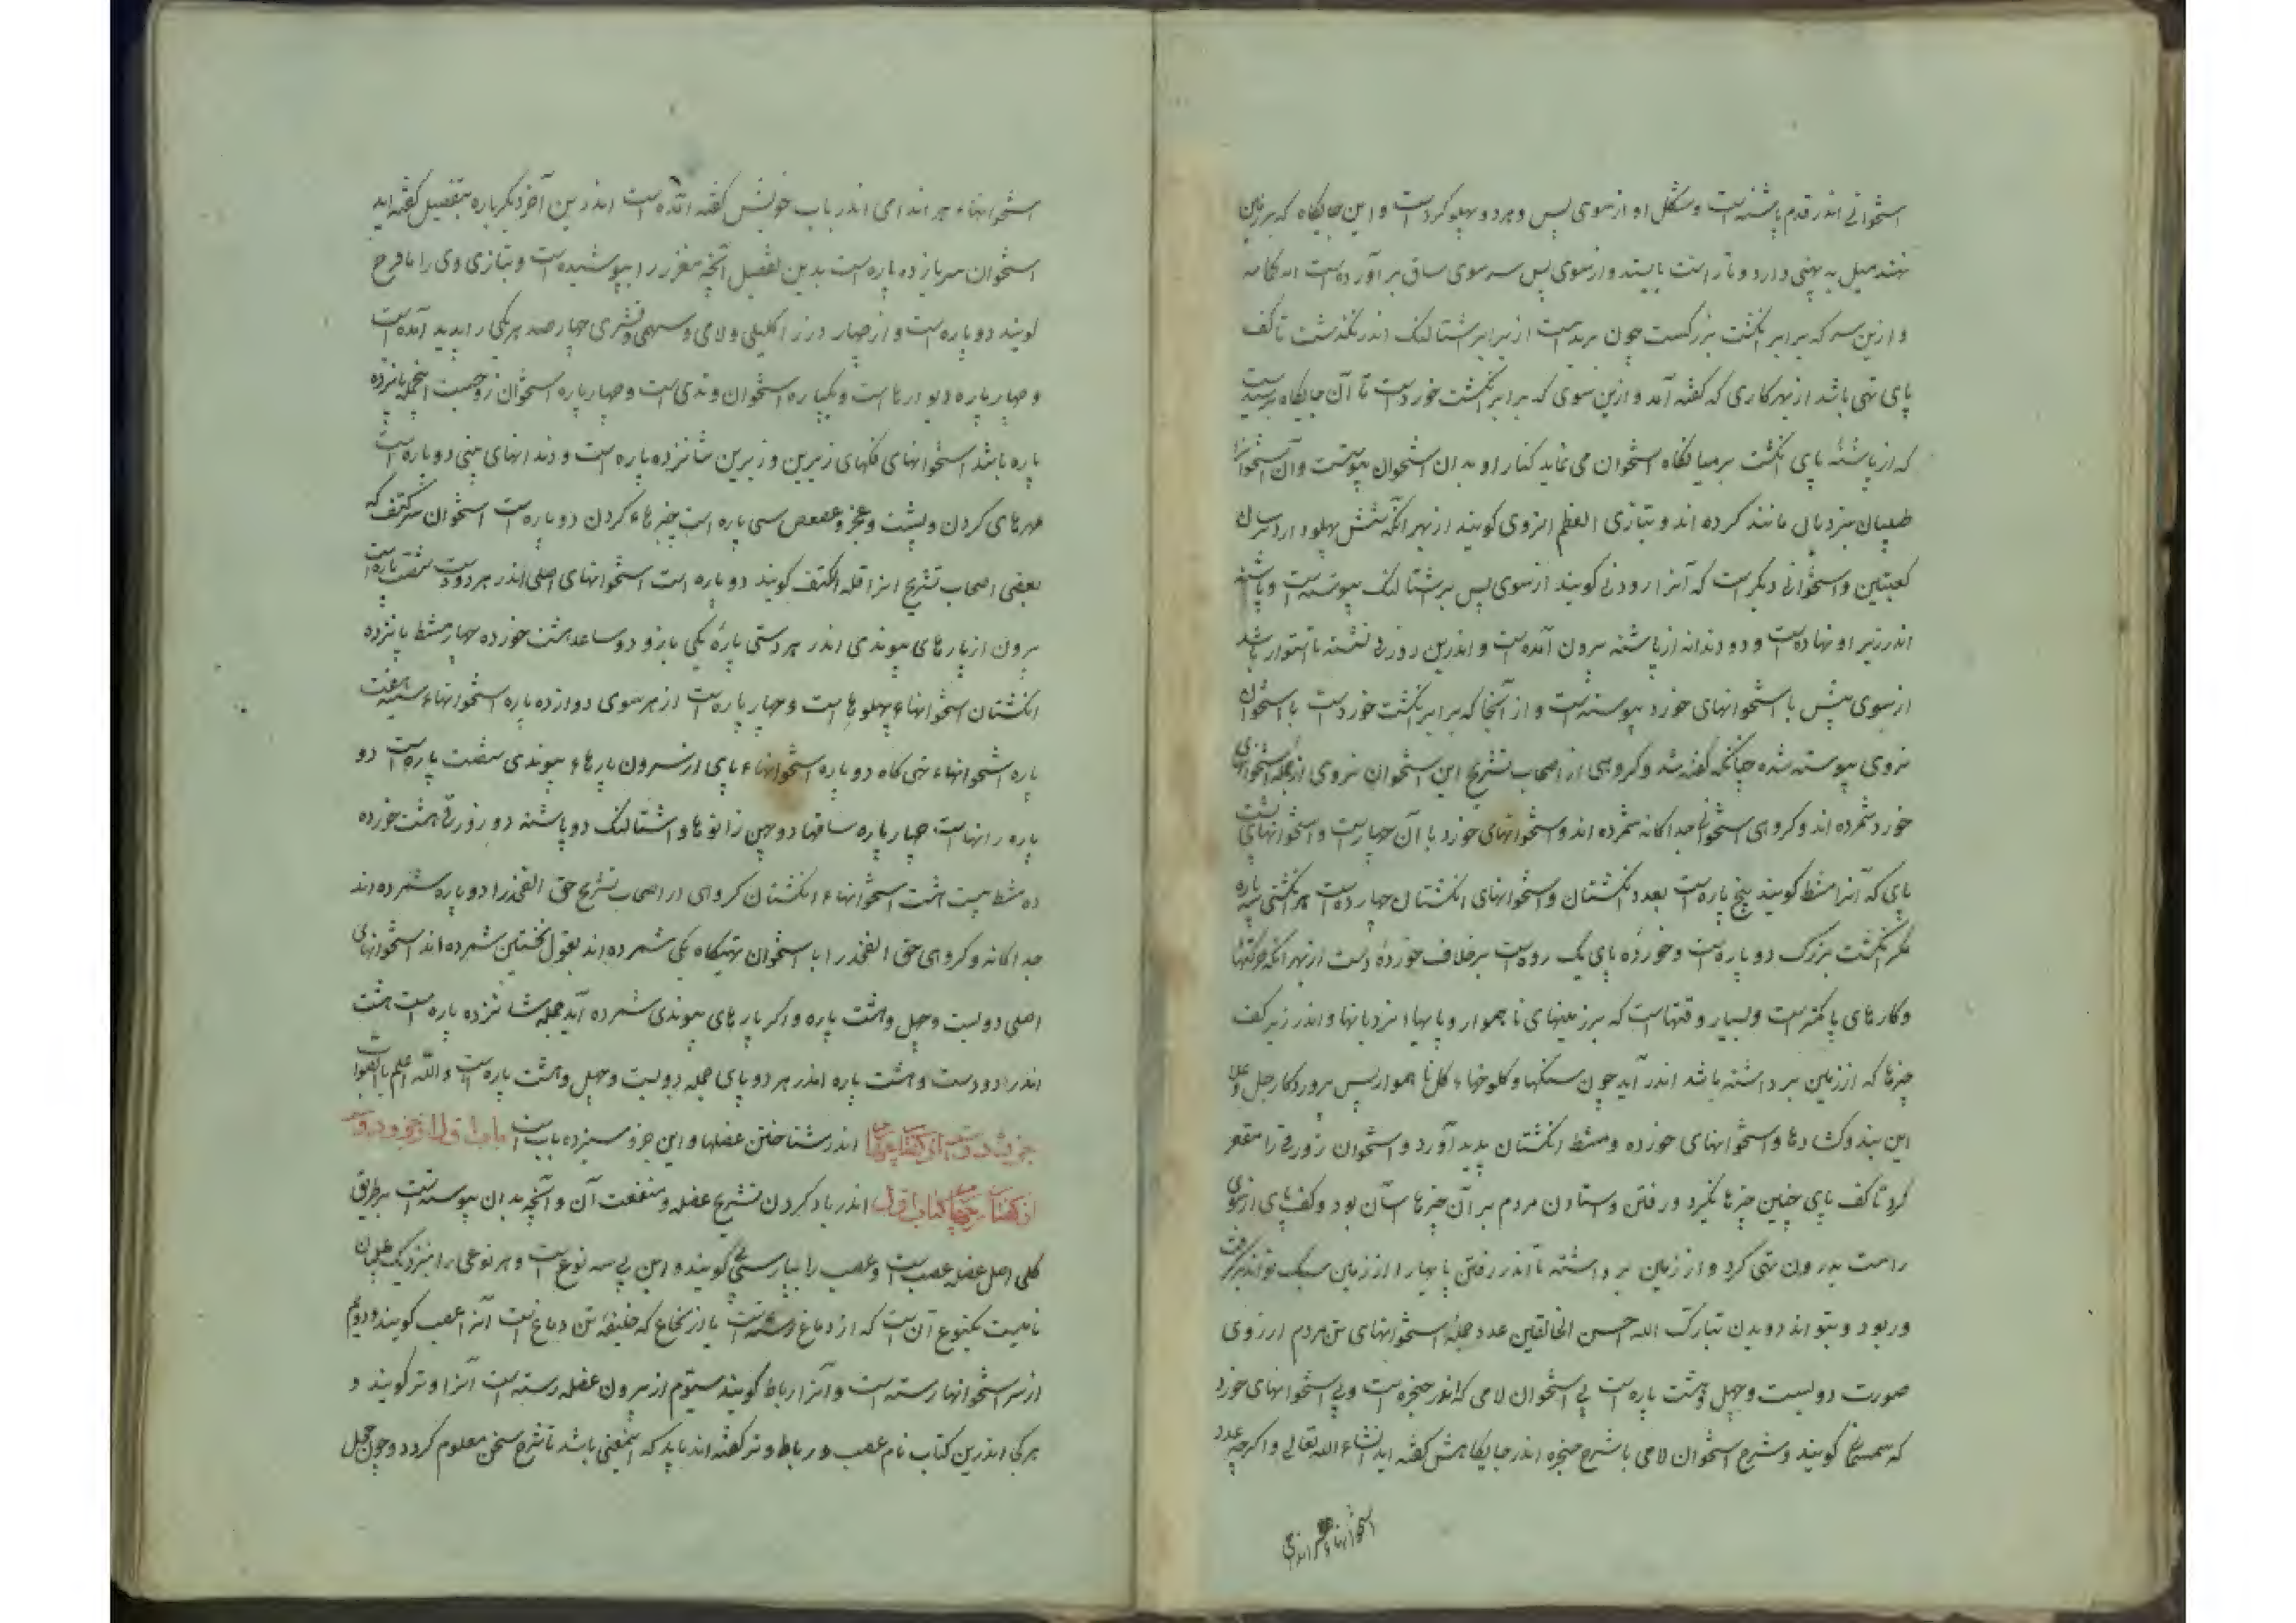 استخوانی اندر قدم پاشنه است و شکل او از سوی پس و هر دو پهلو کردست و این جایگاه که بر زمین
نهند میل به پهنی دارد و تا راست بایستد و از سوی پس سر سوی ساق بر آورده است
و ازین سر که برابر انگشت بزرگست چون بریده است از برابر شتالنگ اندر گذشت تا کف
پای تهی باشد از بهر کاری که گفته آمد و ازین سوی که برابر انگشت خوردست تا آن جایگاه برسیدست
که از پاشنه پای انگشت بر میانگاه استخوان می نماید کنار او بدان استخوان پیوست و آن استخوانرا
طبیبان بنردبان مانند کرده اند و بتازی العظم النردی کویند از بهر انکه شش پهلو دارد بسان
کعبتین و استخوانی دیگرست که آنرا زورقی کویند از سوی پس بر شتالنگ پیوسته است و پاشنه
اندر زیر او نهادست و دو دندانه از پاشنه بیرون آمده است و اندرین زورقی نشسته تا استوار باشد
از سوی پیش با استخوانهای خورد پیوسته است و از آنجا که برابر انگشت خوردست با استخوان
نردی پیوسته شده چنانکه گفته شد و کروهی از اصحاب تشریح این استخوان نردی از جمله استخوانهای
خورد شمرده اند و کروهی استخوانی جداکانه شمرده اند و استخوانهای خورد با آن چهارست و استخوانهای پشت
پای که آنرا مشط کویند پنج پاره است بعدد انگشتان و استخوانهای انگشتان چهارده است هر انگشتی سه پاره
مگر انگشت بزرک دو پاره است و خورده پای یک رده است بر خلاف خوردهٔ دست از بهر انکه حرکتها
و کارهای پا کمترست و بسیار وقتهاست که بر زمینهای ناهموار و پایها و نردبانها و اندر زیر کف
چیزها که از زمین برداشته باشد اندر آید چون سنکها و کلوخها و کل ناهموار پس پروردکار جل و علا
این بند و کشادها و استخوانهای خورده و مشط انگشتان پدید آورد و استخوان زورقی را مقعر
کرد تا کف پای چنین چیزها بگیرد و رفتن و ستادن مردم بر آن چیزها آسان بود و کف پای از سوی
راست بدرون تهی کرد و از زمین برداشته تا اندر رفتن پایها را از زمین سبک تواند برگرفت
و ربود و بتواند دویدن تبارک الله احسن الخالقین عدد جملهٔ استخوانهای تن مردم از روی
صورت دویست و چهل و هشت پاره است بی استخوان لامی که اندر حنجره است و بی استخوانهای خورد
که سمسمانی کویند و شرح استخوان لامی با شرح حنجره اندر جایکاهش گفته اید انشاء الله تعالی و اگرچه عدد
استخوانهاء هر اندامی
استخوانهاء هر اندامی اندر باب خویش گفته آمده است اندرین آخر دیگر باره بتفصیل گفته اید
استخوان سر یازده پاره است بدین تفصیل آنچه مغز را بپوشیده است و بتازی وی را یافوخ
کویند دو پاره است و از چهار درز اکلیلی و لامی و سهمی و قشری چهار حد هر یکی را پدید آمده است
و چهار پاره دیوارها است و یکپاره استخوان وتدی است و چهار پاره استخوان زوجست اینجمله پانزده
پاره باشد استخوانهای فکهای زیرین و زبرین شانزده پاره است و دندانهای بینی دو پاره است
مهرهای کردن و پشت و عجز و عصعص سی پاره است چنبرهاء کردن دو پاره است استخوان سر کتف که
بعضی اصحاب تشریح انرا قلة الکتف کویند دو پاره است استخوانهای اصلی اندر هر دو دست شصت پاره است
بیرون از پارهای پیوندی اندر هر دستی پارهٔ یکی بازو دو ساعد هشت خورده چهار مشط پانزده
انگشتان استخوانهاء پهلوها است و چهار پاره است از هر سوی دوازده پاره استخوانهاء سینه هفت
پاره استخوانهاء تهی کاه دو پاره استخوانهاء پای از بیرون پارهاء پیوندی شصت پاره است دو
پاره رانهاست چهار پاره ساقها دو عین زانوها و اشتالنگ دو پاشنه دو زورقی هشت خورده
ده مشط بیست هشت استخوانهاء انگشتان کروهی از اصحاب تشریح حق الفخذ را دو پاره شمرده اند
جداکانه و کروهی حق الفخذ را با استخوان تهیکاه یکی شمرده اند بقول نخستین شمرده اند استخوانهای
اصلی دویست و چهل و هشت پاره و اکر پارهای پیوندی شمرده آید جمله شانزده پاره است هشت
اندر دو دست و هشت پاره اندر هر دو پای جمله دویست و چهل و هشت پاره است و الله اعلم بالصواب
جزو دوم از گفتار چهارم اندر شناختن عضلها و این جزو سیزده باب است باب اول از جزو دوم
از گفتار چهارم کتاب اول اندر یاد کردن تشریح عضله و منفعت آن و آنچه بدان پیوسته است بر طریق
کلی اصل عضله عصب است و عصب را بپارسی پی کویند و این پی سه نوع است و هر نوعی را بنزدیک طبیبان
نامیست یکنوع آنست که از دماغ رسته است یا از نخاع که خلیفهٔ دماغ است آنرا عصب کویند و دوم
از سر استخوانها رسته است و آنرا رباط کویند سیوم از بیرون عضله رسته است آنرا وتر کویند و
هر کی اندرین کتاب نام عصب و رباط و وتر گفته اند باید که اینمعنی باشد تا شرح سخن معلوم کردد و چون جمل